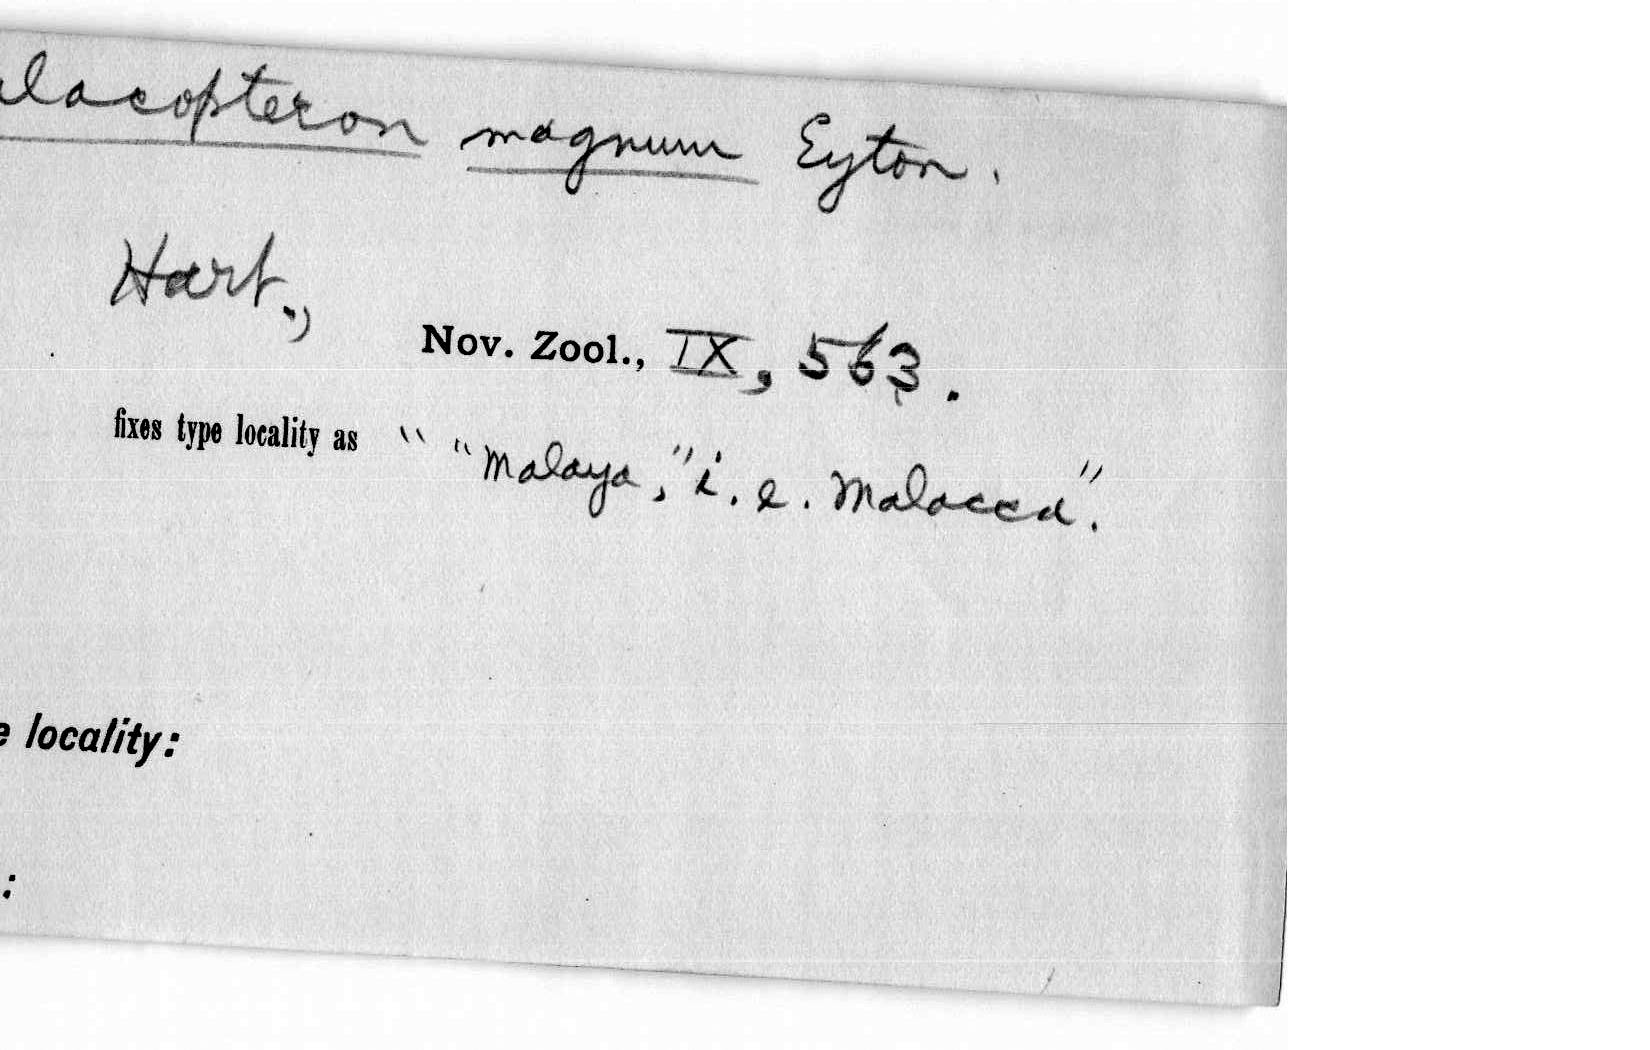 alacopteron magnum Eyton.
Hart., Nov. Zool., IX, 563.
fixes type locality as " "Malaya," i.e. Malacca".
e locality:
: